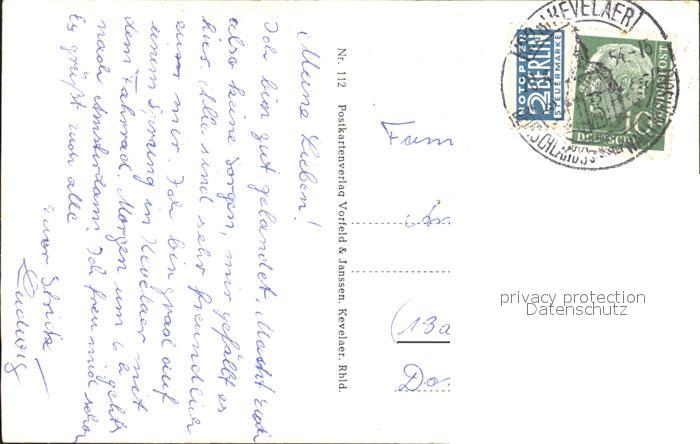 Meine Lieben!
Ich bin gut gelandet. Macht euch
also keine Sorgen, mir gefällt es
hier. Alle sind sehr freundlich
zu mir. Ich bin grad auf
einem Sprung in Kevelaer mit
dem Fahrrad. Morgen um 6h geht's
nach Amsterdam. Ich freu mich schon
Es grüßt euch alle
euer
Ludwig
Nr. 112 Postkartenverlag Vorfeld & Janssen, Kevelaer, Rhld.
Fam
(13a
Do
KEVELAER
NOTOPFER
2 BERLIN
STEUERMARKE
DEUTSCHE BUNDESPOST
10
privacy protection
Datenschutz